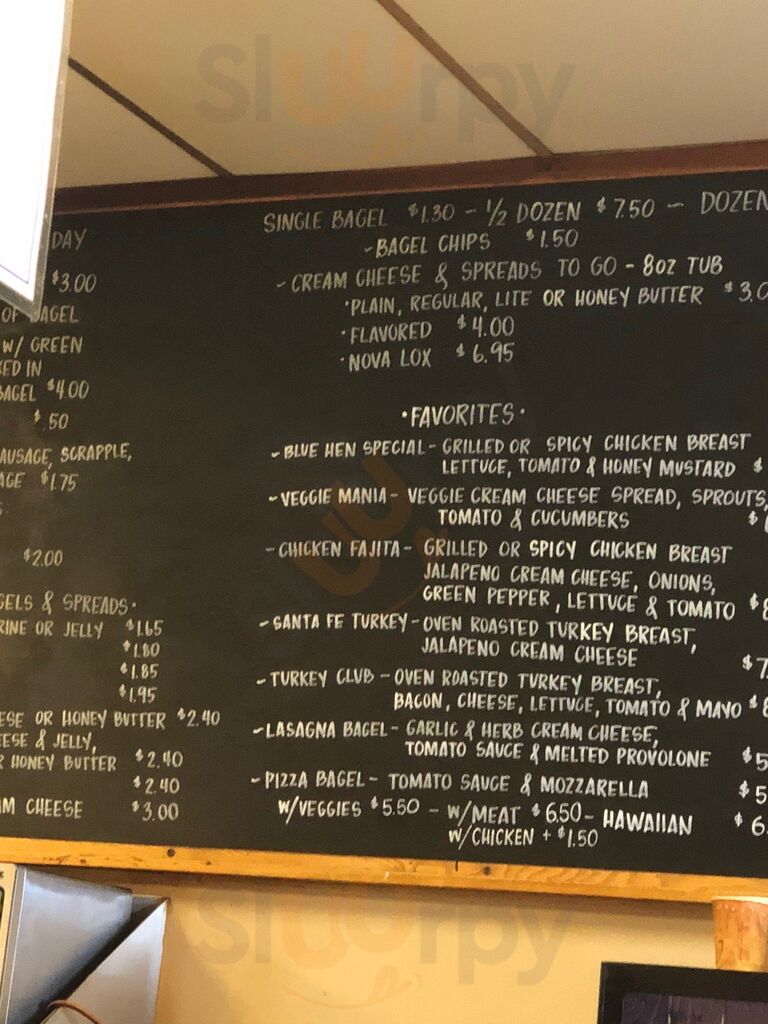 Sluurpy
DAY
$3.00
OF BAGEL
W/ GREEN
IN
BAGEL $4.00
$.50
SAUSAGE, SCRAPPLE,
$1.75
$2.00
& SPREADS·
OR JELLY $1.65
$1.80
$1.85
$1.95
OR HONEY BUTTER $2.40
& JELLY,
HONEY BUTTER $2.40
$2.40
CHEESE $3.00
SINGLE BAGEL $1.30 - 1/2 DOZEN $7.50 - DOZEN
-BAGEL CHIPS $1.50
- CREAM CHEESE & SPREADS TO GO - 8OZ TUB
·PLAIN, REGULAR, LITE OR HONEY BUTTER
·FLAVORED $4.00
·NOVA LOX $6.95
·FAVORITES·
-BLUE HEN SPECIAL- GRILLED OR SPICY CHICKEN BREAST
LETTUCE, TOMATO & HONEY MUSTARD $
-VEGGIE MANIA- VEGGIE CREAM CHEESE SPREAD, SPROUTS,
TOMATO & CUCUMBERS $
-CHICKEN FAJITA- GRILLED OR SPICY CHICKEN BREAST
JALAPENO CREAM CHEESE, ONIONS,
GREEN PEPPER, LETTUCE & TOMATO $
-SANTA FE TURKEY-OVEN ROASTED TURKEY BREAST,
JALAPENO CREAM CHEESE $7.
-TURKEY CLUB - OVEN ROASTED TURKEY BREAST,
BACON, CHEESE, LETTUCE, TOMATO & MAYO $
-LASAGNA BAGEL- GARLIC & HERB CREAM CHEESE,
TOMATO SAUCE & MELTED PROVOLONE $5
-PIZZA BAGEL- TOMATO SAUCE & MOZZARELLA $5
W/VEGGIES $5.50 - W/MEAT $6.50- HAWAIIAN $6.
W/CHICKEN + $1.50
Sluurpy